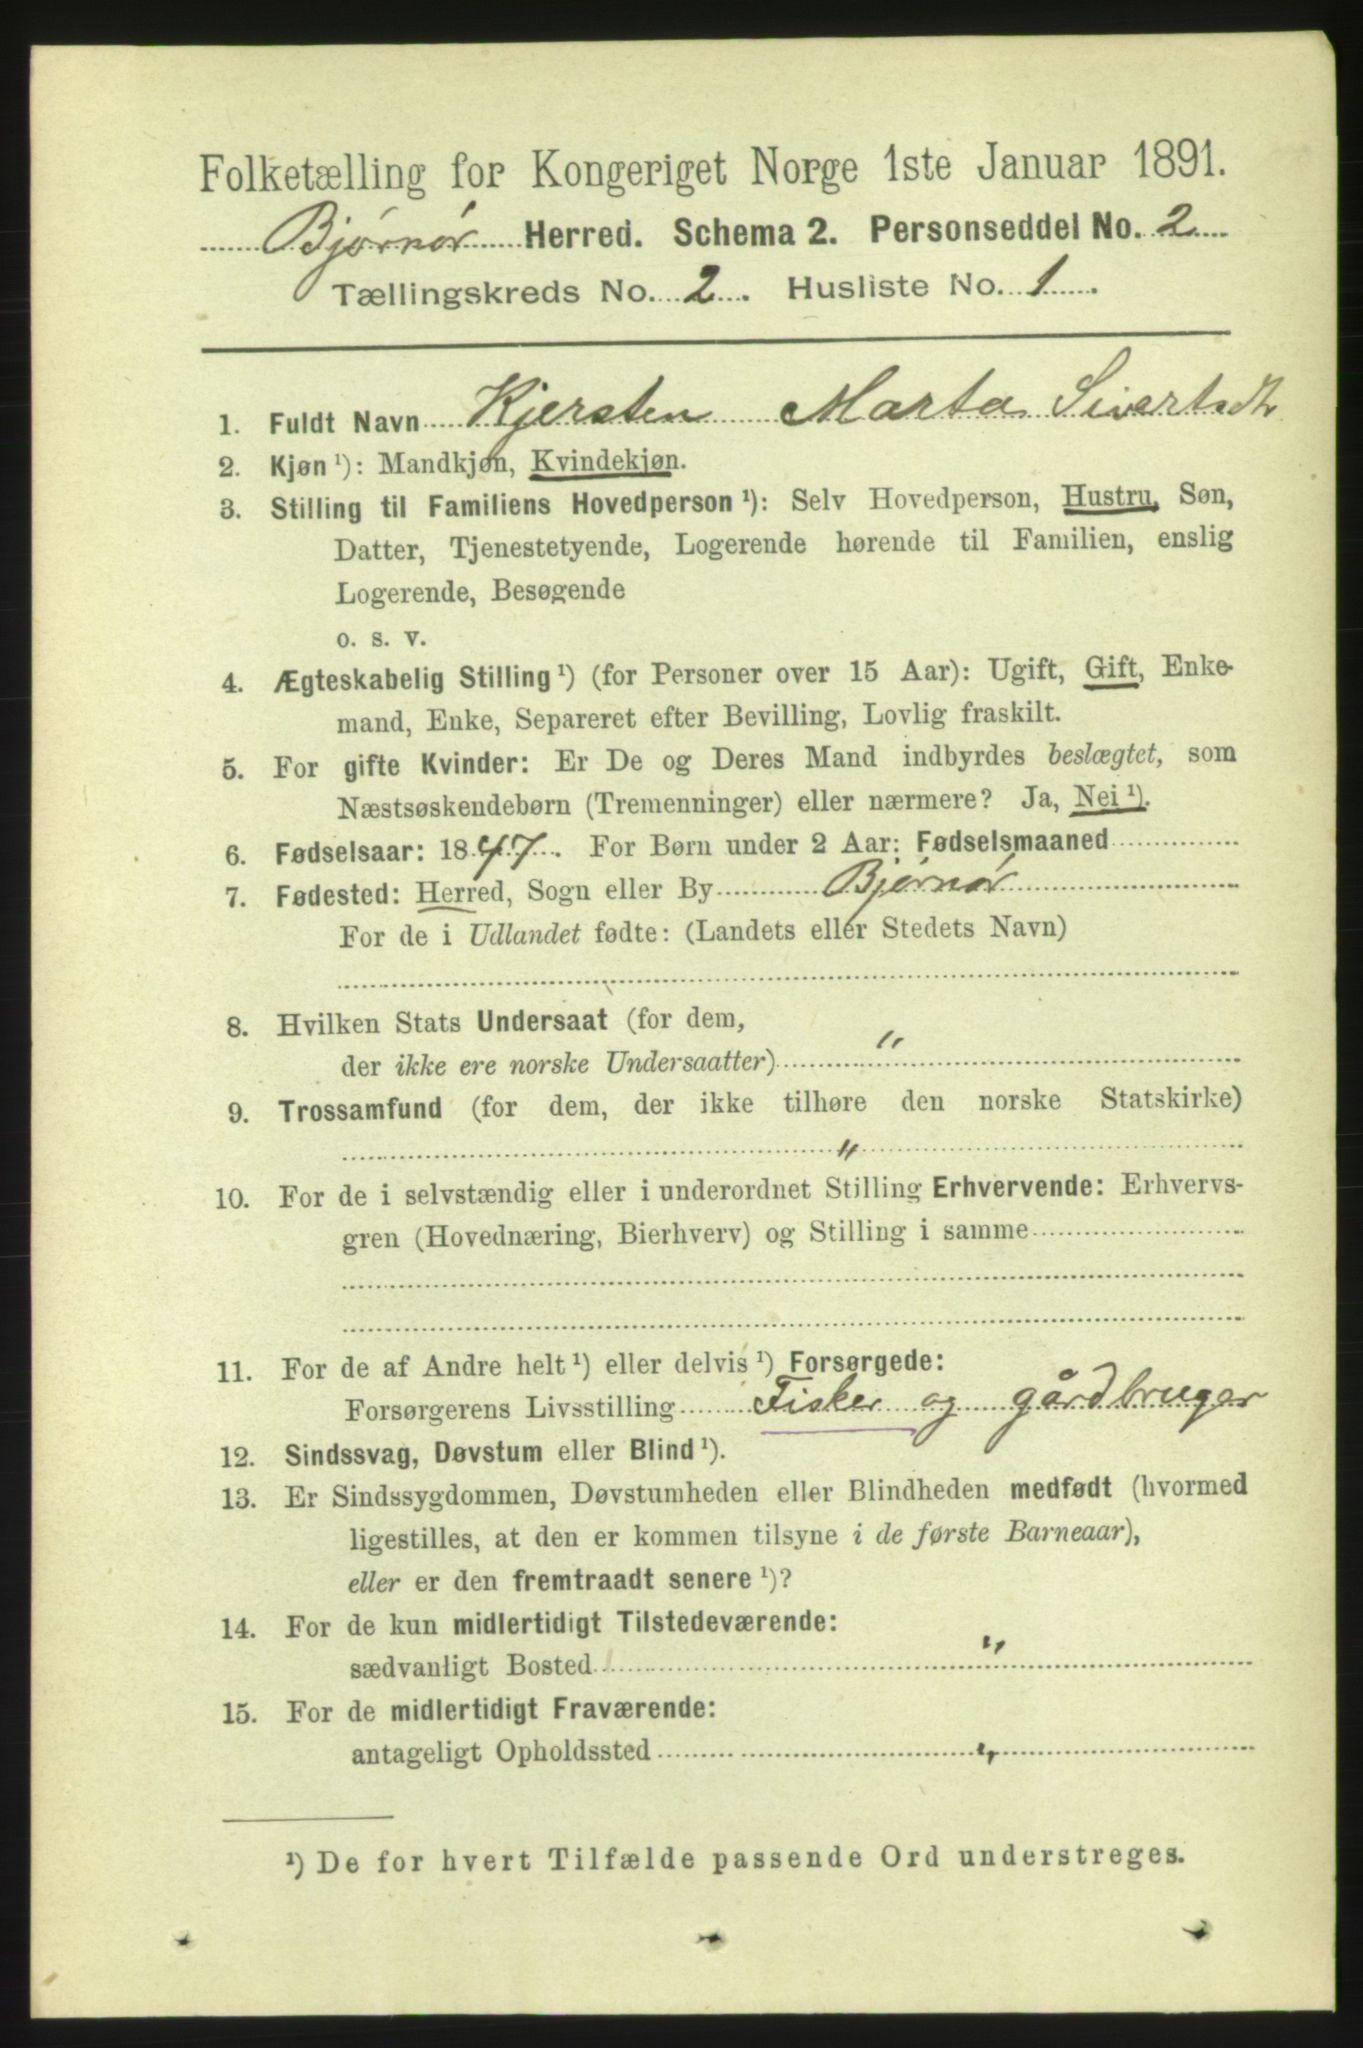 Folketælling for Kongeriget Norge 1ste Januar 1891.
Bjørnør Herred. Schema 2. Personseddel No. 2
Tællingskreds No. 2. Husliste No. 1.
1. Fuldt Navn Kjersten Marta Sivertsdtr
2. Kjøn ¹): Mandkjøn, Kvindekjøn.
3. Stilling til Familiens Hovedperson ¹): Selv Hovedperson, Hustru, Søn,
Datter, Tjenestetyende, Logerende hørende til Familien, enslig
Logerende, Besøgende
o. s. v.
4. Ægteskabelig Stilling ¹) (for Personer over 15 Aar): Ugift, Gift, Enke-
mand, Enke, Separeret efter Bevilling, Lovlig fraskilt.
5. For gifte Kvinder: Er De og Deres Mand indbyrdes beslægtet, som
Næstsøskendebørn (Tremenninger) eller nærmere? Ja, Nei ¹).
6. Fødselsaar: 1847. For Børn under 2 Aar: Fødselsmaaned
7. Fødested: Herred, Sogn eller By Bjørnør
For de i Udlandet fødte: (Landets eller Stedets Navn)
8. Hvilken Stats Undersaat (for dem,
der ikke ere norske Undersaatter) "
9. Trossamfund (for dem, der ikke tilhøre den norske Statskirke)
"
10. For de i selvstændig eller i underordnet Stilling Erhvervende: Erhvervs-
gren (Hovednæring, Bierhverv) og Stilling i samme
11. For de af Andre helt ¹) eller delvis ¹) Forsørgede:
Forsørgerens Livsstilling Fisker og gårdbruger
12. Sindssvag, Døvstum eller Blind ¹).
13. Er Sindssygdommen, Døvstumheden eller Blindheden medfødt (hvormed
ligestilles, at den er kommen tilsyne i de første Barneaar),
eller er den fremtraadt senere ¹)?
14. For de kun midlertidigt Tilstedeværende:
sædvanligt Bosted "
15. For de midlertidigt Fraværende:
antageligt Opholdssted "
¹) De for hvert Tilfælde passende Ord understreges.